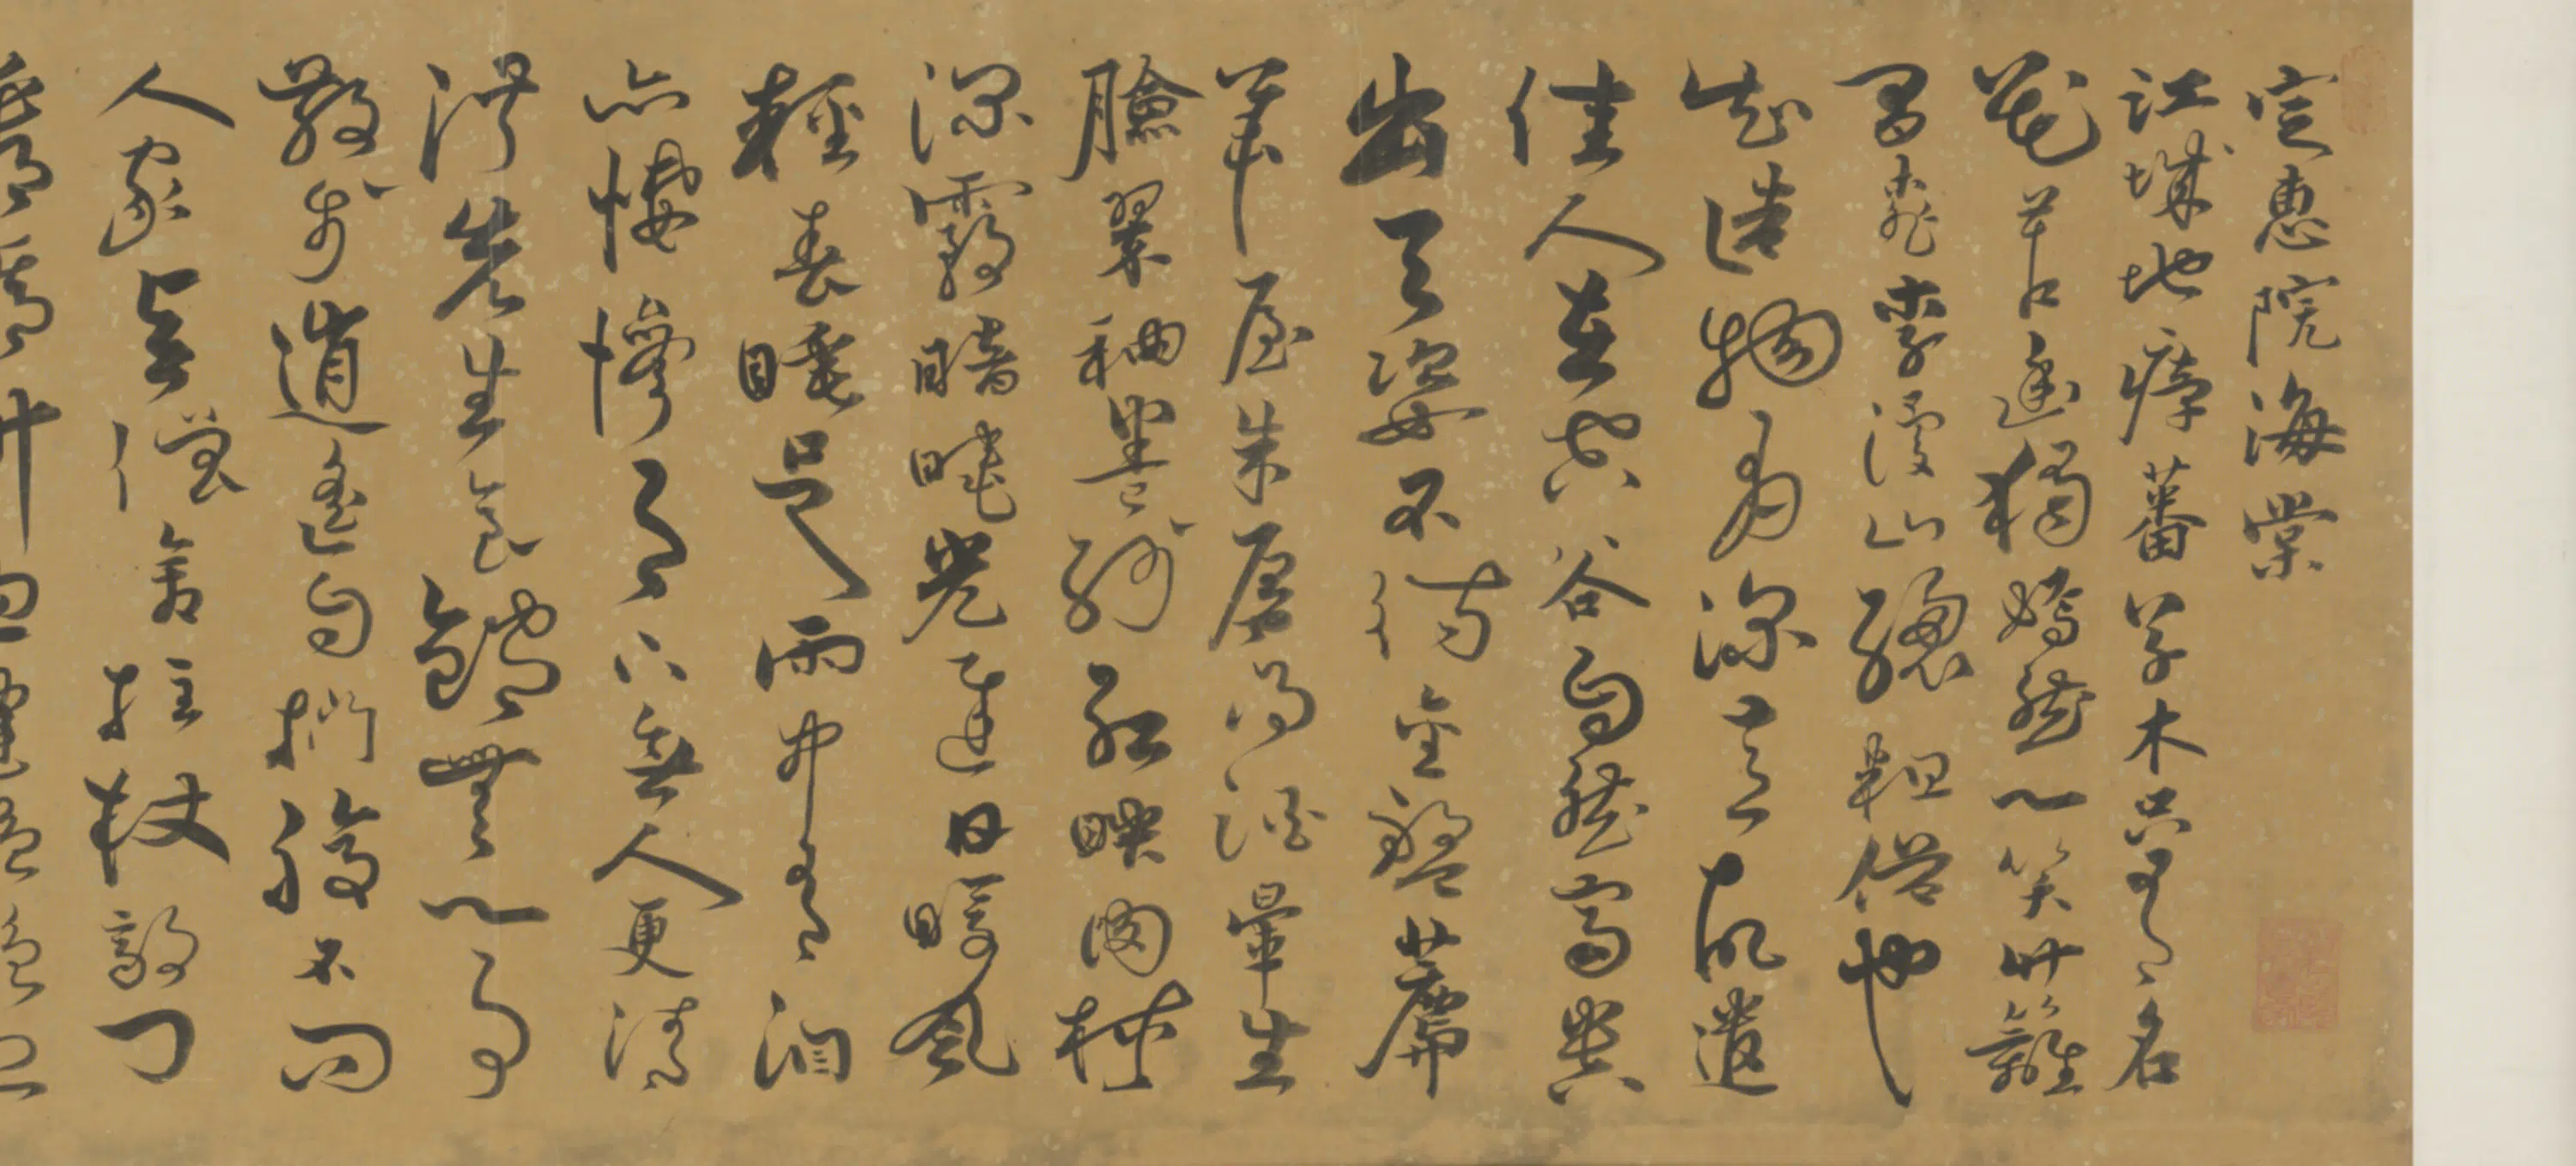 定惠院海棠
江城地瘴蕃草木只有名
花苦幽獨嫣然一笑竹籬
間桃李漫山總粗俗也
知造物有深意故遣
佳人在空谷自然富貴
出天姿不待金盤薦
華屋朱唇得酒暈生
臉翠袖卷紗紅映肉林
深霧暗曉光遲日暖風
輕春睡足雨中有淚
亦悽慘月下無人更清
淑先生食飽無一事
散步逍遙自捫腹不問
人家與僧舍拄杖敲門